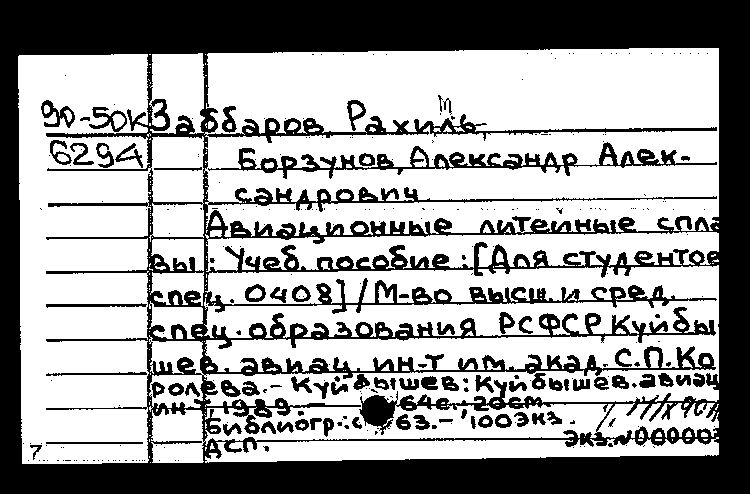 90-50К Заббаров, Рахиль,
6294 Борзунов, Александр Алек-
сандрович
Авиационные литейные спла
вы : Учеб. пособие : [Для студентов
спец. 0408] / М-во высш. и сред.
спец. образования РСФСР, Куйбы
шев. авиац. ин-т им. акад. С.П. Ко
ролева. - Куйбышев : Куйбышев. авиац
ин-т, 1989. - 64с.; 20см.
Библиогр.: с 63. - 100экз.
экз. N00000
ДСП.
7